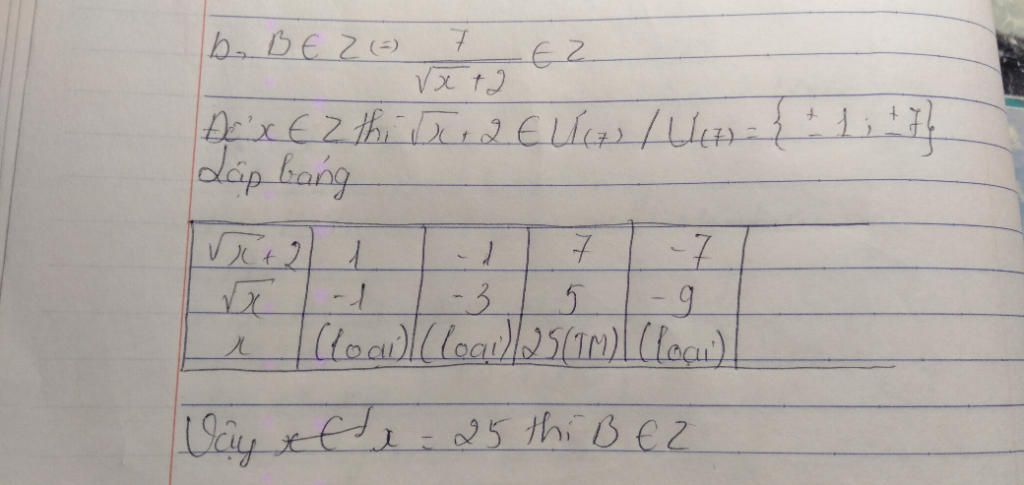 b, B ∈ Z (=) 7/(√x + 2) ∈ Z
Để x ∈ Z thì √x + 2 ∈ Ư(7) / Ư(7) = { ± 1 ; ± 7}
Lập bảng
√x + 2 | 1 | -1 | 7 | -7
√x | -1 | -3 | 5 | -9
x | (loại) | (loại) | 25(TM) | (loại)
Vậy x = 25 thì B ∈ Z